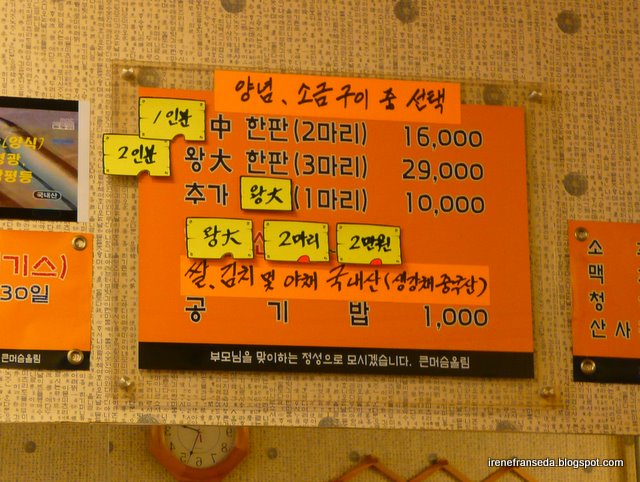 양념、소금구이 중 선택
1인분 中 한판(2마리) 16,000
2인분 왕大 한판(3마리) 29,000
추가 왕大 (1마리) 10,000
왕大 2마리 2만원
쌀、김치 및 야채 국내산(생강채 중국산)
공 기 밥 1,000
부모님을 맞이하는 정성으로 모시겠습니다. 큰머슴울림
(양식)
영광
국내산
기스)
30일
큰머슴울림
소
맥
청
산 사
irenefranseda.blogspot.com